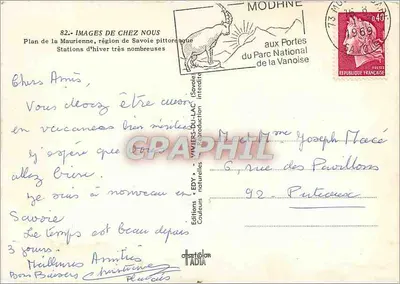 82.- IMAGES DE CHEZ NOUS
Plan de la Maurienne, région de Savoie pittoresque
Stations d'hiver très nombreuses
MODANE
aux Portes
du Parc National
de la Vanoise
73
1969
0,40
REPUBLIQUE FRANÇAISE
Chers Amis,
Vous devez être
en vacances bien méritées
J'espère que vous
allez bien.
Je suis à nouveau en
Savoie
Le temps est beau depuis
3 jours.
Meilleures Amitiés
Bons Baisers Christiane
Editions "EDY"
Couleurs naturelles
reproduction interdite
CPAPHIL
M et Mme Joseph Macé
6, rue des Pavillons
92 - Puteaux